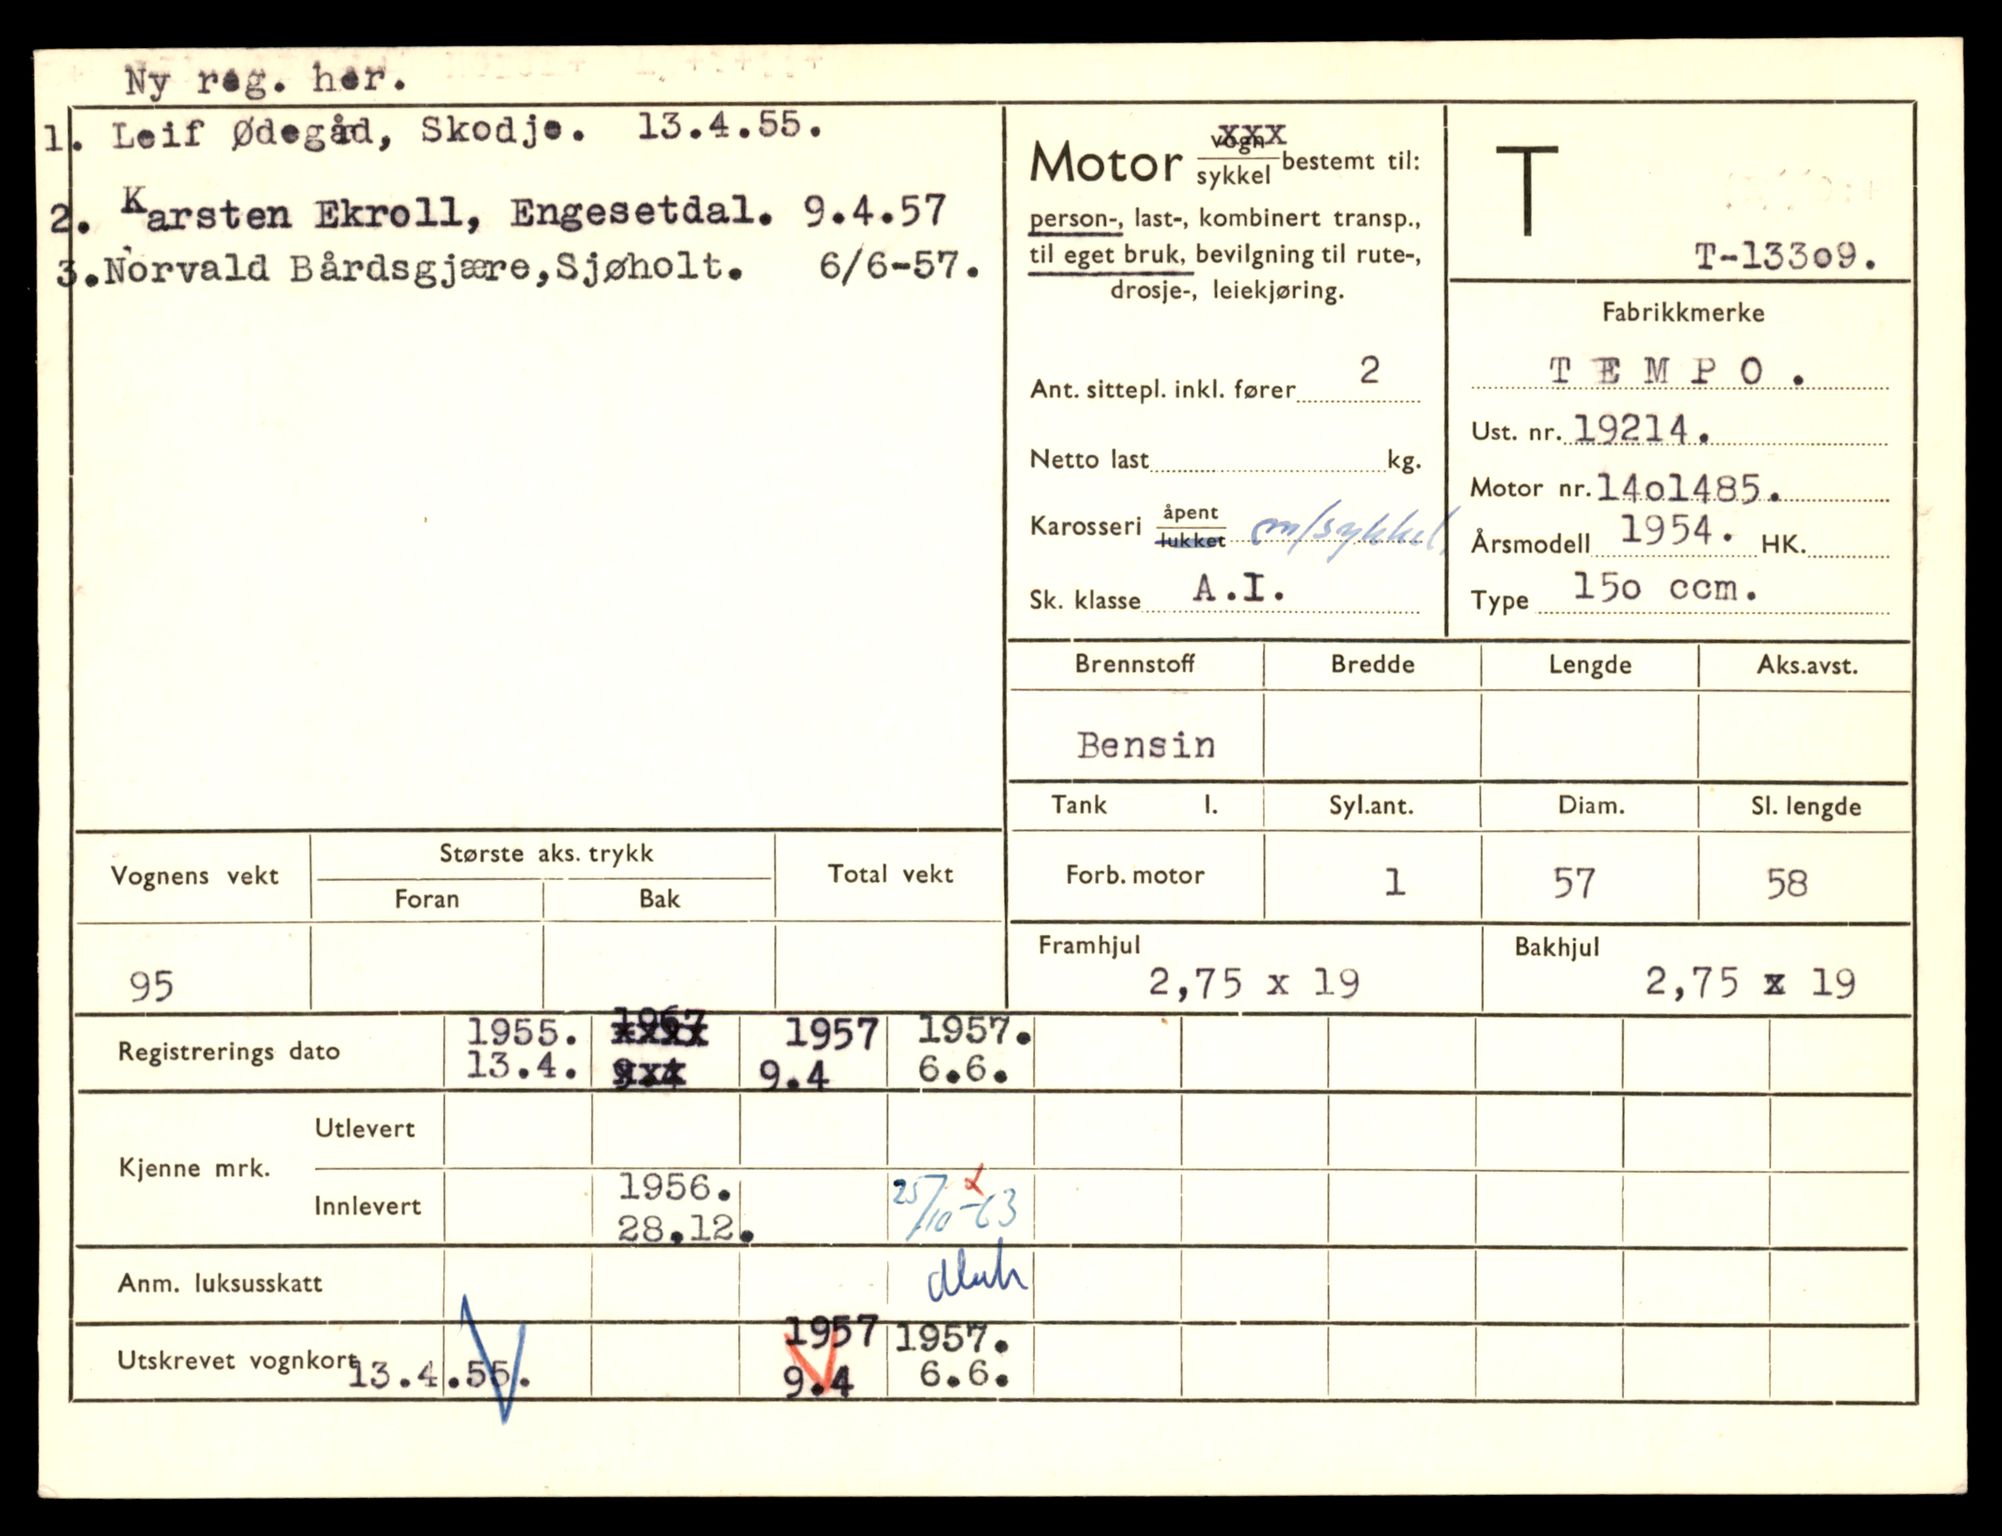 Ny reg. her.
1. Leif Ødegård, Skodje. 13.4.55.
2. Karsten Ekroll, Engesetdal. 9.4.57
3.Norvald Bårdsgjære,Sjøholt. 6/6-57.
Motor vogn xxx
sykkel bestemt til:
person-, last-, kombinert transp.,
til eget bruk, bevilgning til rute-,
drosje-, leiekjøring.
Ant. sittepl. inkl. fører 2
Netto last kg.
Karosseri åpent
lukket m/sykkel
Sk. klasse A.I.
T
T-13309.
Fabrikkmerke
TEMPO.
Ust. nr. 19214.
Motor nr. 14o1485.
Årsmodell 1954. HK.
Type 15o ccm.
Brennstoff Bredde Lengde Aks.avst.
Bensin
Tank l. Syl.ant. Diam. Sl. lengde
Forb. motor 1 57 58
Framhjul Bakhjul
2,75 x 19 2,75 x 19
Vognens vekt Største aks. trykk Total vekt
Foran Bak
95
Registrerings dato 1955. 1957 1957.
13.4. 9.4 6.6.
Kjenne mrk. Utlevert
Innlevert 1956. 25/10-63
28.12.
Anm. luksusskatt
Utskrevet vognkort 13.4.55. 1957 1957.
9.4 6.6.